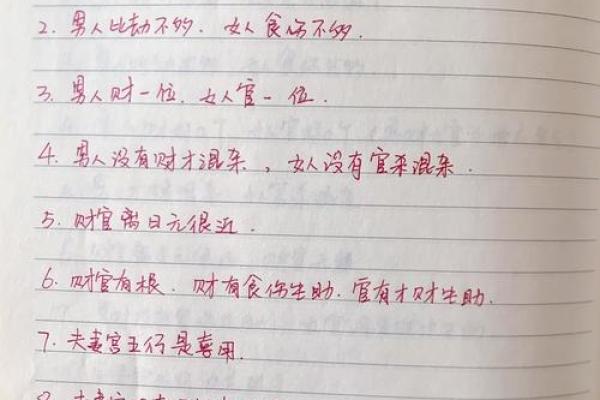 2. 男人比劫不多. 女人食伤不多.
3. 男人财一位. 女人官一位.
4. 男人没有财才混杂, 女人没有官杀混杂.
5. 财官离日元很近.
6. 财官有根. 财有食伤生助. 官有才财生助.
7. 夫妻宫五行是喜用.
8. 夫妻宫